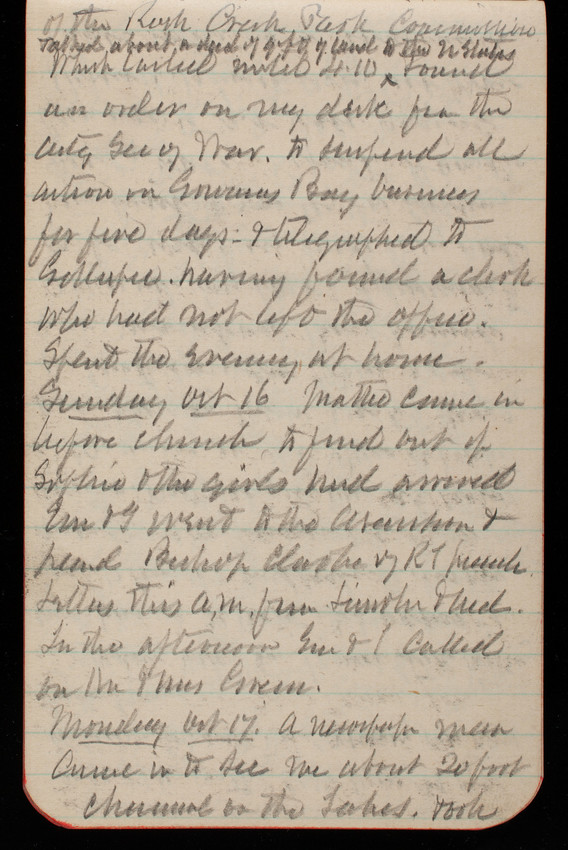 of the Rock Creek Park Commission
Talked about a deed of gift of land to the U States
which lasted until 4.10, Found
an order on my desk from the
actg Sec of War. to suspend all
action on Gowanus Bay business
for five days - & telegraphed to
Gillespie. having found a clerk
who had not left the office.
Spent the evening at home.
Sunday Oct 16 Mattie came in
before church to find out if
Sophie & the girls had arrived
Em & I went to the Ascension &
heard Bishop Clarke of RI preach
Letters this a.m. from Lincoln & Ned.
In the afternoon Em & I called
on Mr & Mrs Green.
Monday Oct 17. A newspaper man
came in to see me about 20 foot
channel in the Lakes. took